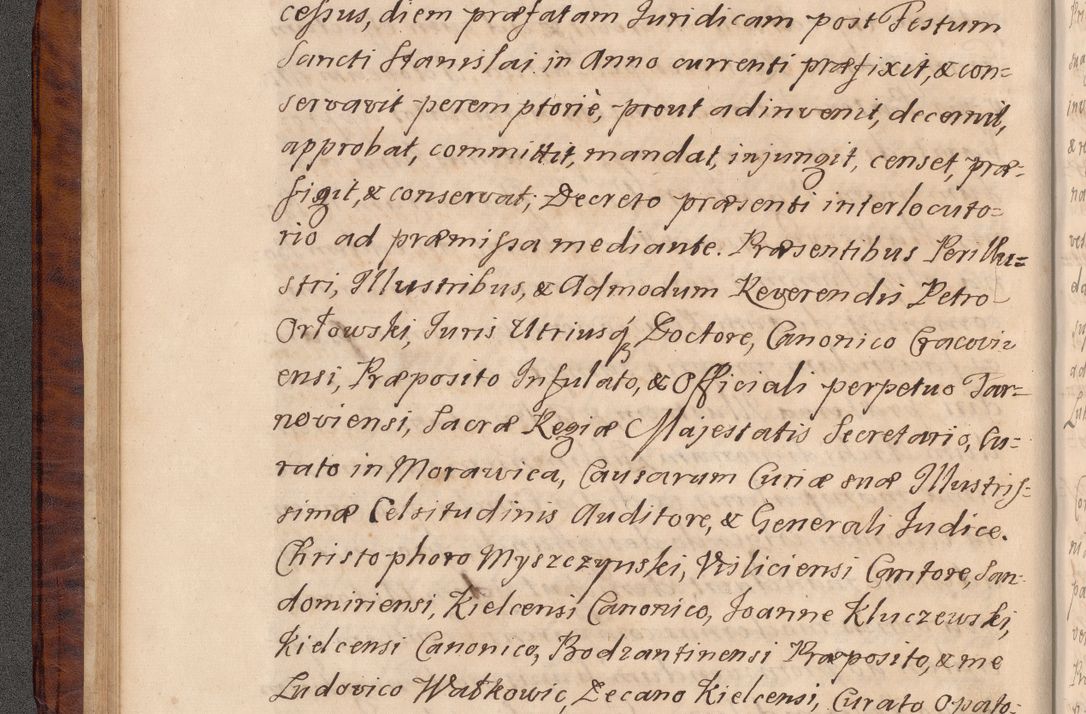 cessus, diem præfatam Juridicam post Festum
Sancti Stanislai in Anno currenti præfixit, & con=
servavit peremptoriè, prout adinvenit, decernit,
approbat, committit, mandat, injungit, censet, præ=
figit, & conservat; Decreto præsenti interlocuto=
rio ad præmissa mediante. Præsentibus Perillu=
stri, Illustribus, & Admodum Reverendis Petro
Orłowski, Juris Utriusq́ Doctore, Canonico Cracovi=
ensi, Præposito Infulato, & Officiali perpetuo Tar=
noviensi, Sacræ Regiæ Majestatis Secretario, Cu=
rato in Morawica, Causarum Curiæ suæ Illustris=
simæ Celsitudinis Auditore, & Generali Judice.
Christophoro Myszczynski, Visliciensi Cantore, San=
domiriensi, Kielcensi Canonico, Joanne Kluczewski,
Kielcensi Canonico, Bodzantinensi Præposito, & me
Ludovico Watkowic, Decano Kielcensi, Curato Opato=